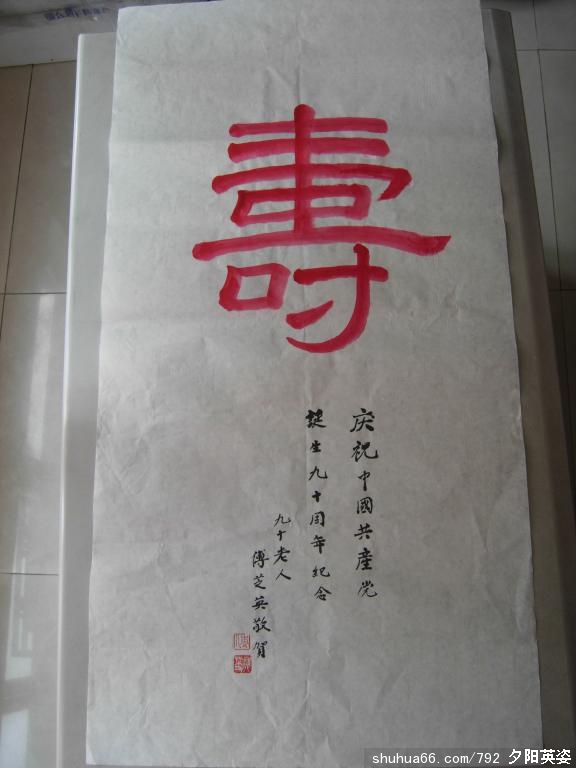 壽
庆祝中國共産党
誕生九十周年纪念
九十老人
傅芝英敬賀
shuhua66.com/792 夕阳英姿